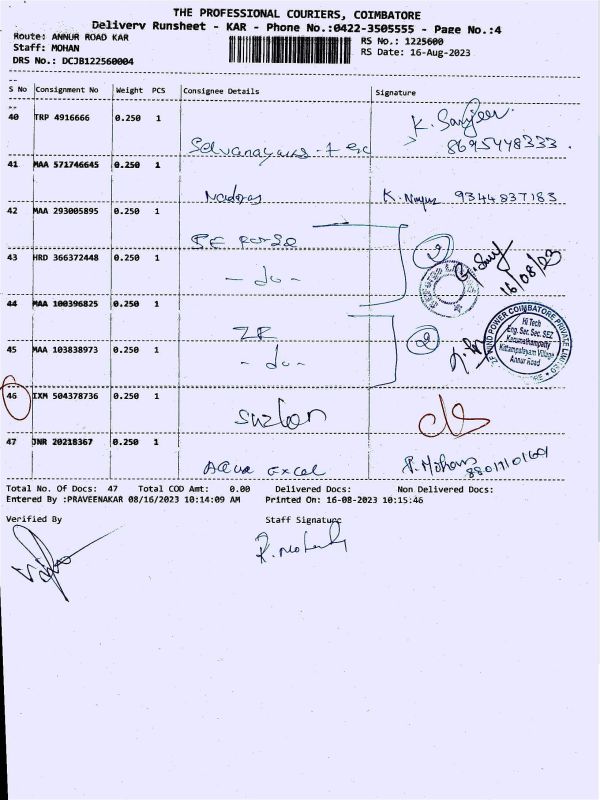 THE PROFESSIONAL COURIERS, COIMBATORE
Delivery Runsheet - KAR - Phone No.:0422-3505555 - Page No.:4
Route: ANNUR ROAD KAR
Staff: MOHAN
DRS No.: DCJB122560004
RS No.: 1225600
RS Date: 16-Aug-2023
S No Consignment No Weight PCS Consignee Details Signature
40 TRP 4916666 0.250 1
K. Sanjeev
8695448333
41 MAA 571746645 0.250 1
K. 9344837183
42 MAA 293005895 0.250 1
43 HRD 366372448 0.250 1
- do - 2 16/08/23
44 MAA 100396825 0.250 1
ZF 2
45 MAA 103838973 0.250 1
- do -
WIND POWER COIMBATORE PRIVATE LIMITED
Hi Tech
Eng. Sec. Sec. SEZ
Karumathampatty
Kittampalayam Village
Annur Road
46 IXM 504378736 0.250 1 Suzlon
47 JNR 20218367 0.250 1 Aqua Excel P. Mohan
Total No. Of Docs: 47 Total COD Amt: 0.00 Delivered Docs: Non Delivered Docs:
Entered By :PRAVEENAKAR 08/16/2023 10:14:09 AM Printed On: 16-08-2023 10:15:46
Verified By Staff Signature